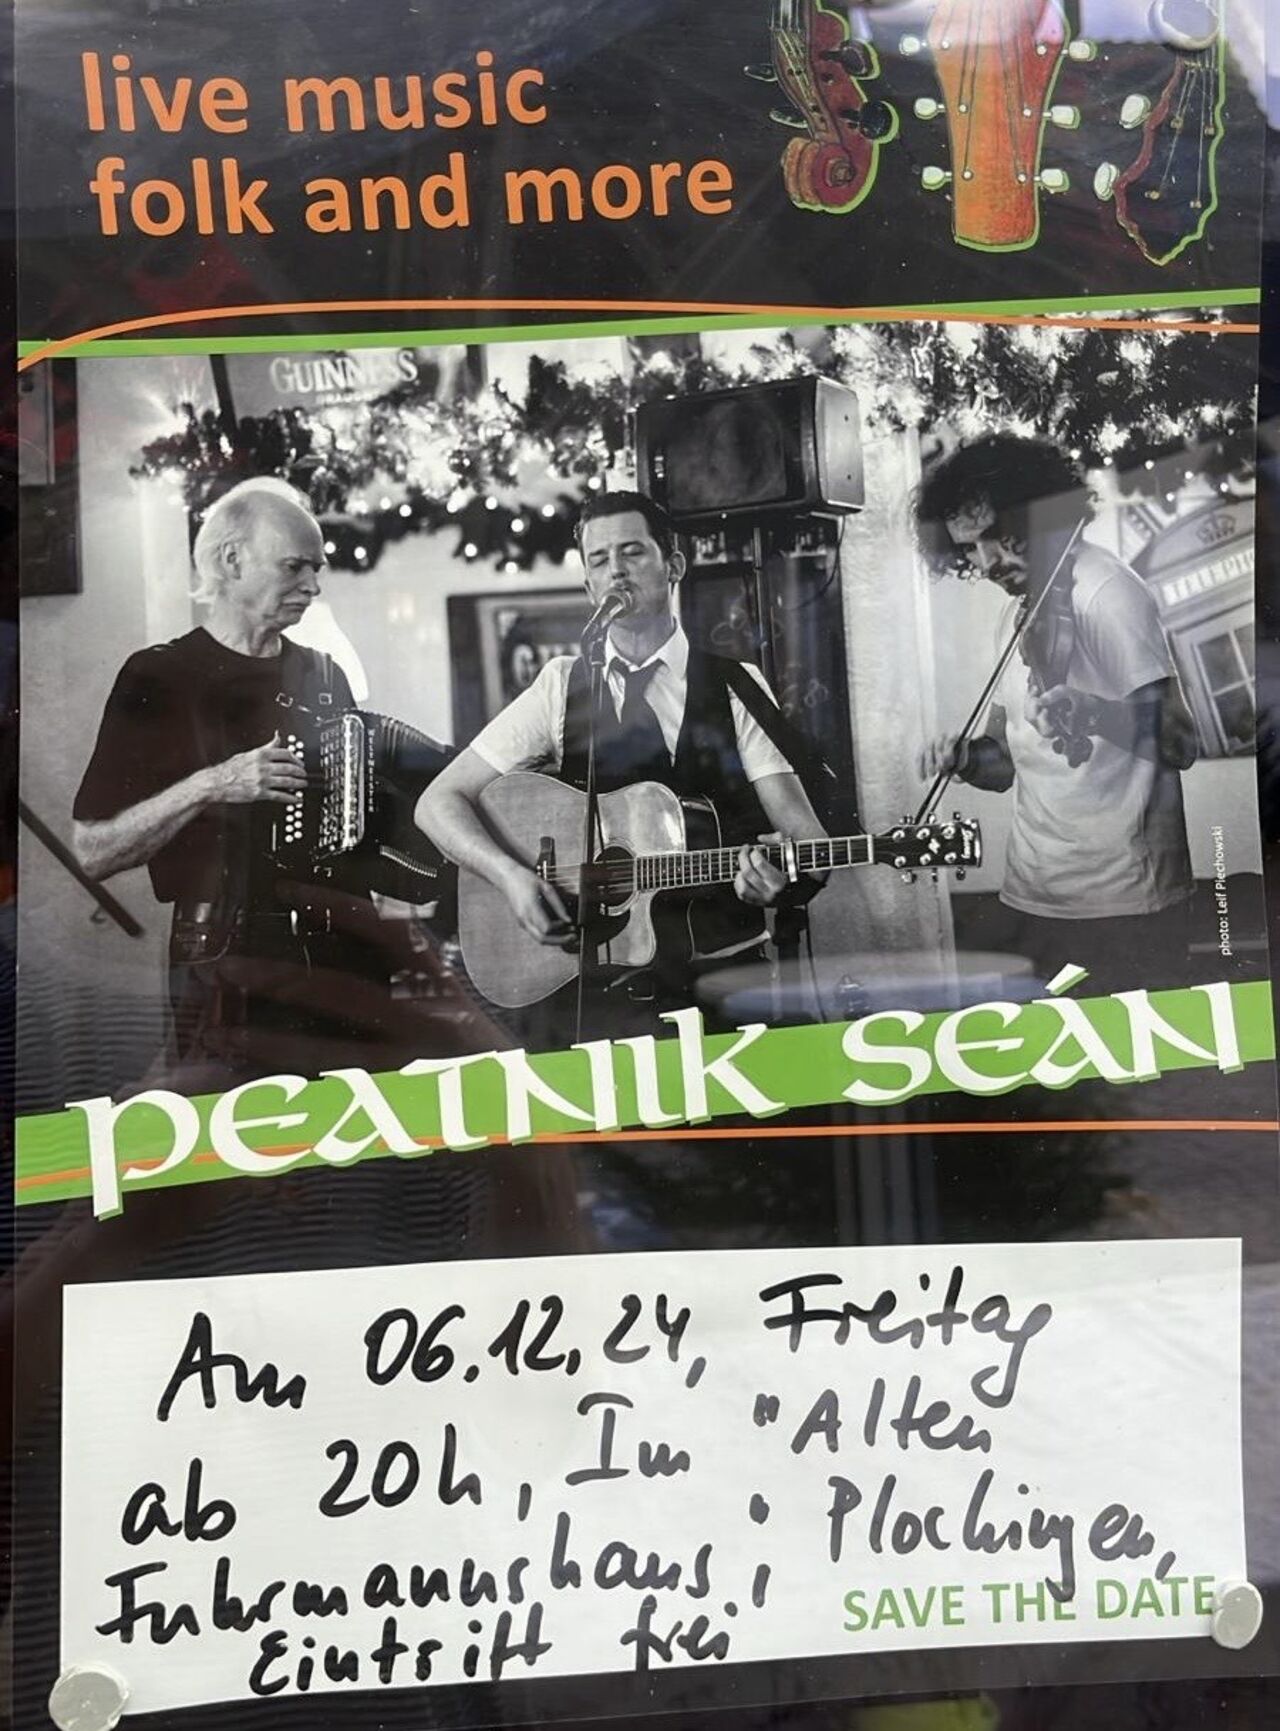 live music
folk and more
GUINNESS
WELTMEISTER
photo: Leif Piechowski
PEATNIK SEÁN
Am 06.12.24, Freitag
ab 20h, Im "Alten
Fuhrmannshaus", Plochingen,
Eintritt frei
SAVE THE DATE